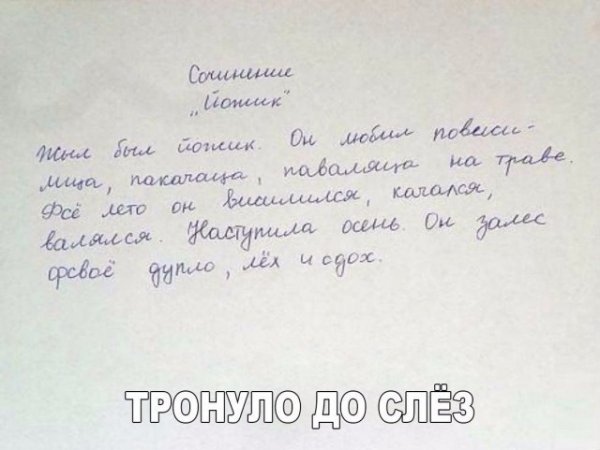 Сочинение
„Йожик"
Жыл был йожик. Он любил повиси-
лица, пакачаца, паваляца на траве.
Фсё лето он висилился, качался,
валялся. Наступила осень. Он залес
фсваё дупло, лёх и сдох.
ТРОНУЛО ДО СЛЁЗ